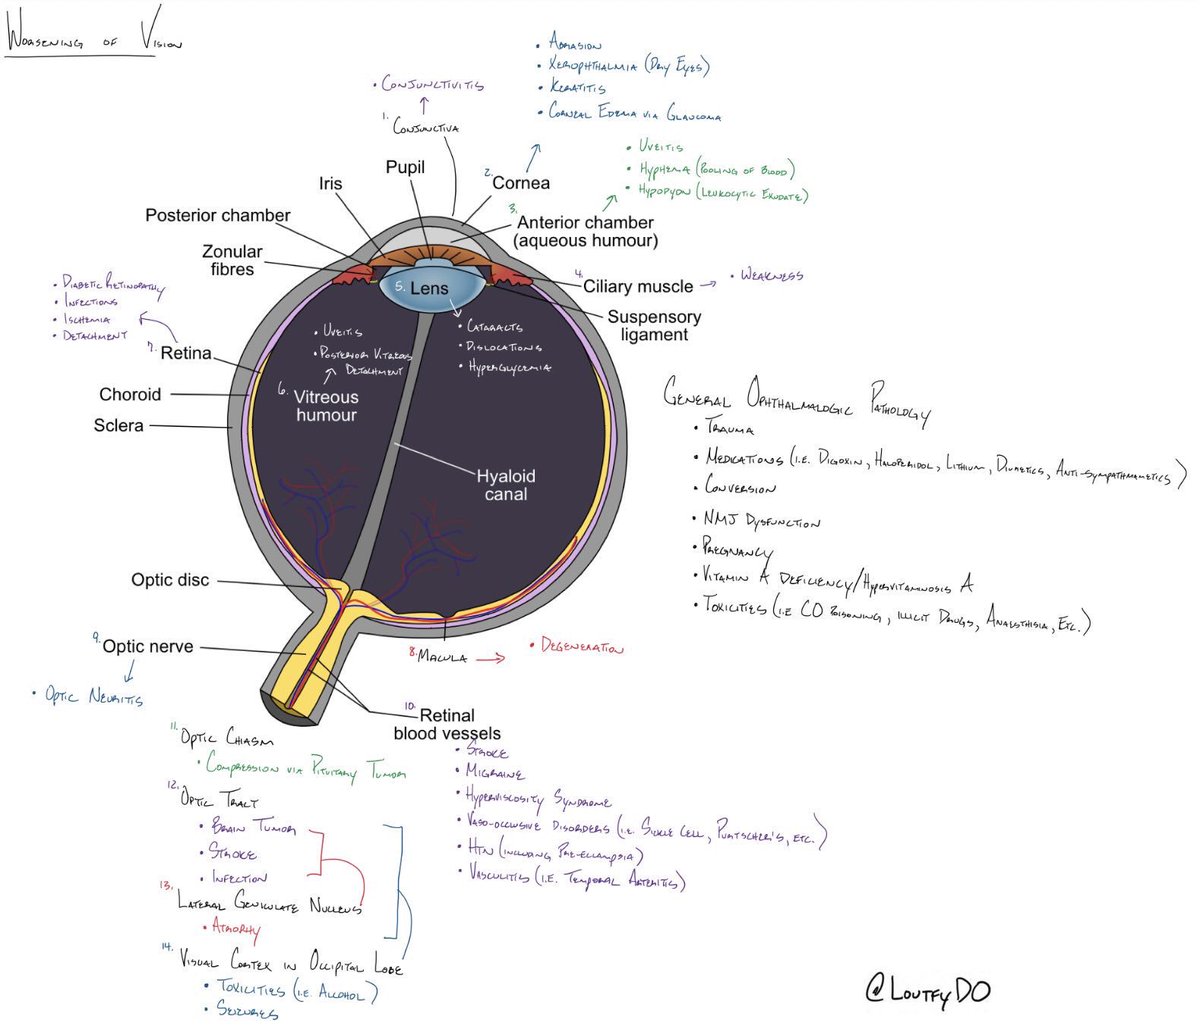 Worsening of Vision
• Abrasion
• Xerophthalmia (Dry Eyes)
• Keratitis
• Corneal Edema via Glaucoma
• Conjunctivitis
1. Conjunctiva
• Uveitis
• Hyphema (Pooling of Blood)
• Hypopyon (Leukocytic Exudate)
Pupil
Iris
2. Cornea
Posterior chamber
3. Anterior chamber
(aqueous humour)
Zonular
fibres
4. Ciliary muscle
• Weakness
5. Lens
Suspensory
ligament
• Diabetic Retinopathy
• Infections
• Ischemia
• Detachment
7. Retina
• Uveitis
• Posterior Vitreous
Detachment
6. Vitreous
humour
• Cataracts
• Dislocations
• Hyperglycemia
Choroid
Sclera
Hyaloid
canal
General Ophthalmalogic Pathology
• Trauma
• Medications (i.e. Digoxin, Haloperidol, Lithium, Diuretics, Anti-sympathmametics)
• Conversion
• NMJ Dysfunction
• Pregnancy
• Vitamin A Deficiency/Hypervitaminosis A
• Toxicities (i.e CO Poisoning, illicit Drugs, Anaesthisia, Etc.)
Optic disc
9. Optic nerve
• Optic Neuritis
8. Macula
• Degeneration
10. Retinal
blood vessels
• Stroke
• Migraine
• Hyperviscosity Syndrome
• Vaso-occlusive Disorders (i.e. Sickle Cell, Purtscher's, etc.)
• HTN (including Pre-eclampsia)
• Vasculities (i.e. Temporal Arteritis)
11. Optic Chiasm
• Compression via Pituitary Tumor
12. Optic Tract
• Brain Tumor
• Stroke
• Infection
13. Lateral Geniculate Nucleus
• Atrophy
14. Visual Cortex in Occipital Lobe
• Toxicities (i.e. Alcohol)
• Seizures
@LoutfyDO